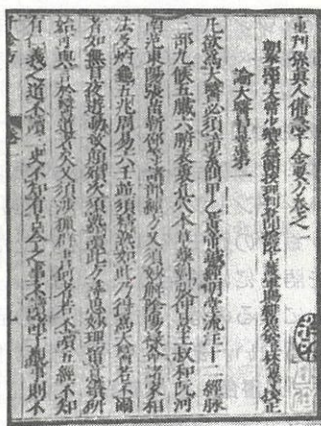 重刊孫真人備急千金要方卷之一
朝奉郎守太常少卿充祕閣校理判登聞檢院上護軍賜緋魚袋臣林億等校正
論大醫習業第一
凡欲為大醫必須諳素問甲乙黃帝鍼經明堂流注十二經脉
三部九候五臟六腑表裏孔穴本草藥對張仲景王叔和阮河
南范東陽張苗靳邵等諸部經方又須妙解陰陽祿命諸家相
法及灼龜五兆周易六壬並須精熟如此乃得為大醫若不爾
者如無目夜遊動致顛殞次須熟讀此方尋思妙理留意鑽研
始可與言於醫道者矣又須涉獵群書何者若不讀五經不知
有仁義之道不讀三史不知有古今之事不讀諸子覩事則不